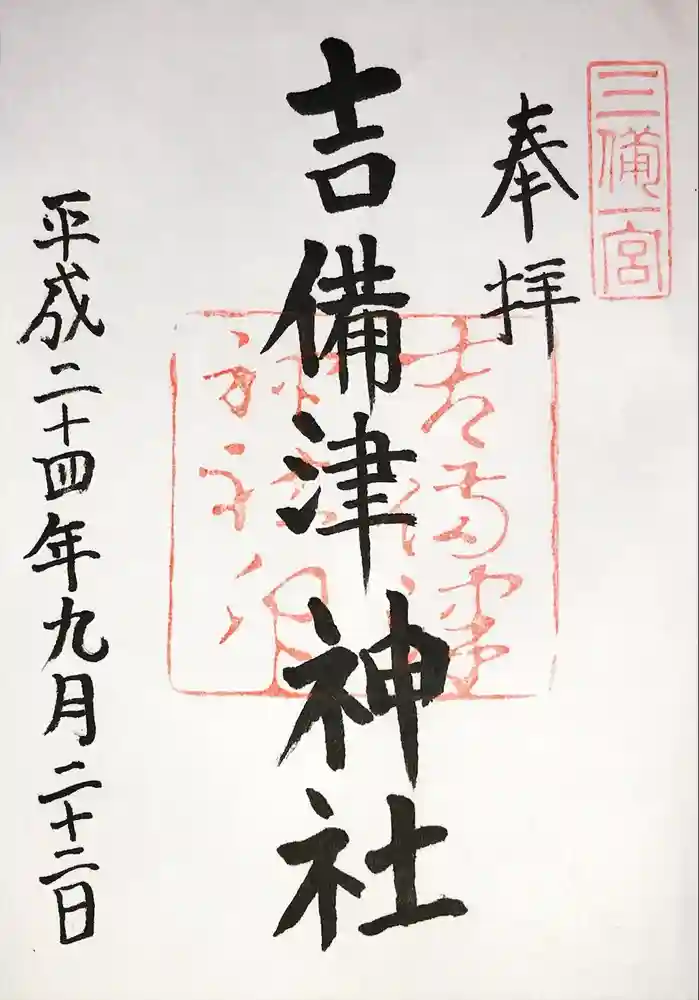 三備一宮
奉拝
吉備津神社
平成二十四年九月二十二日
吉備津
神社